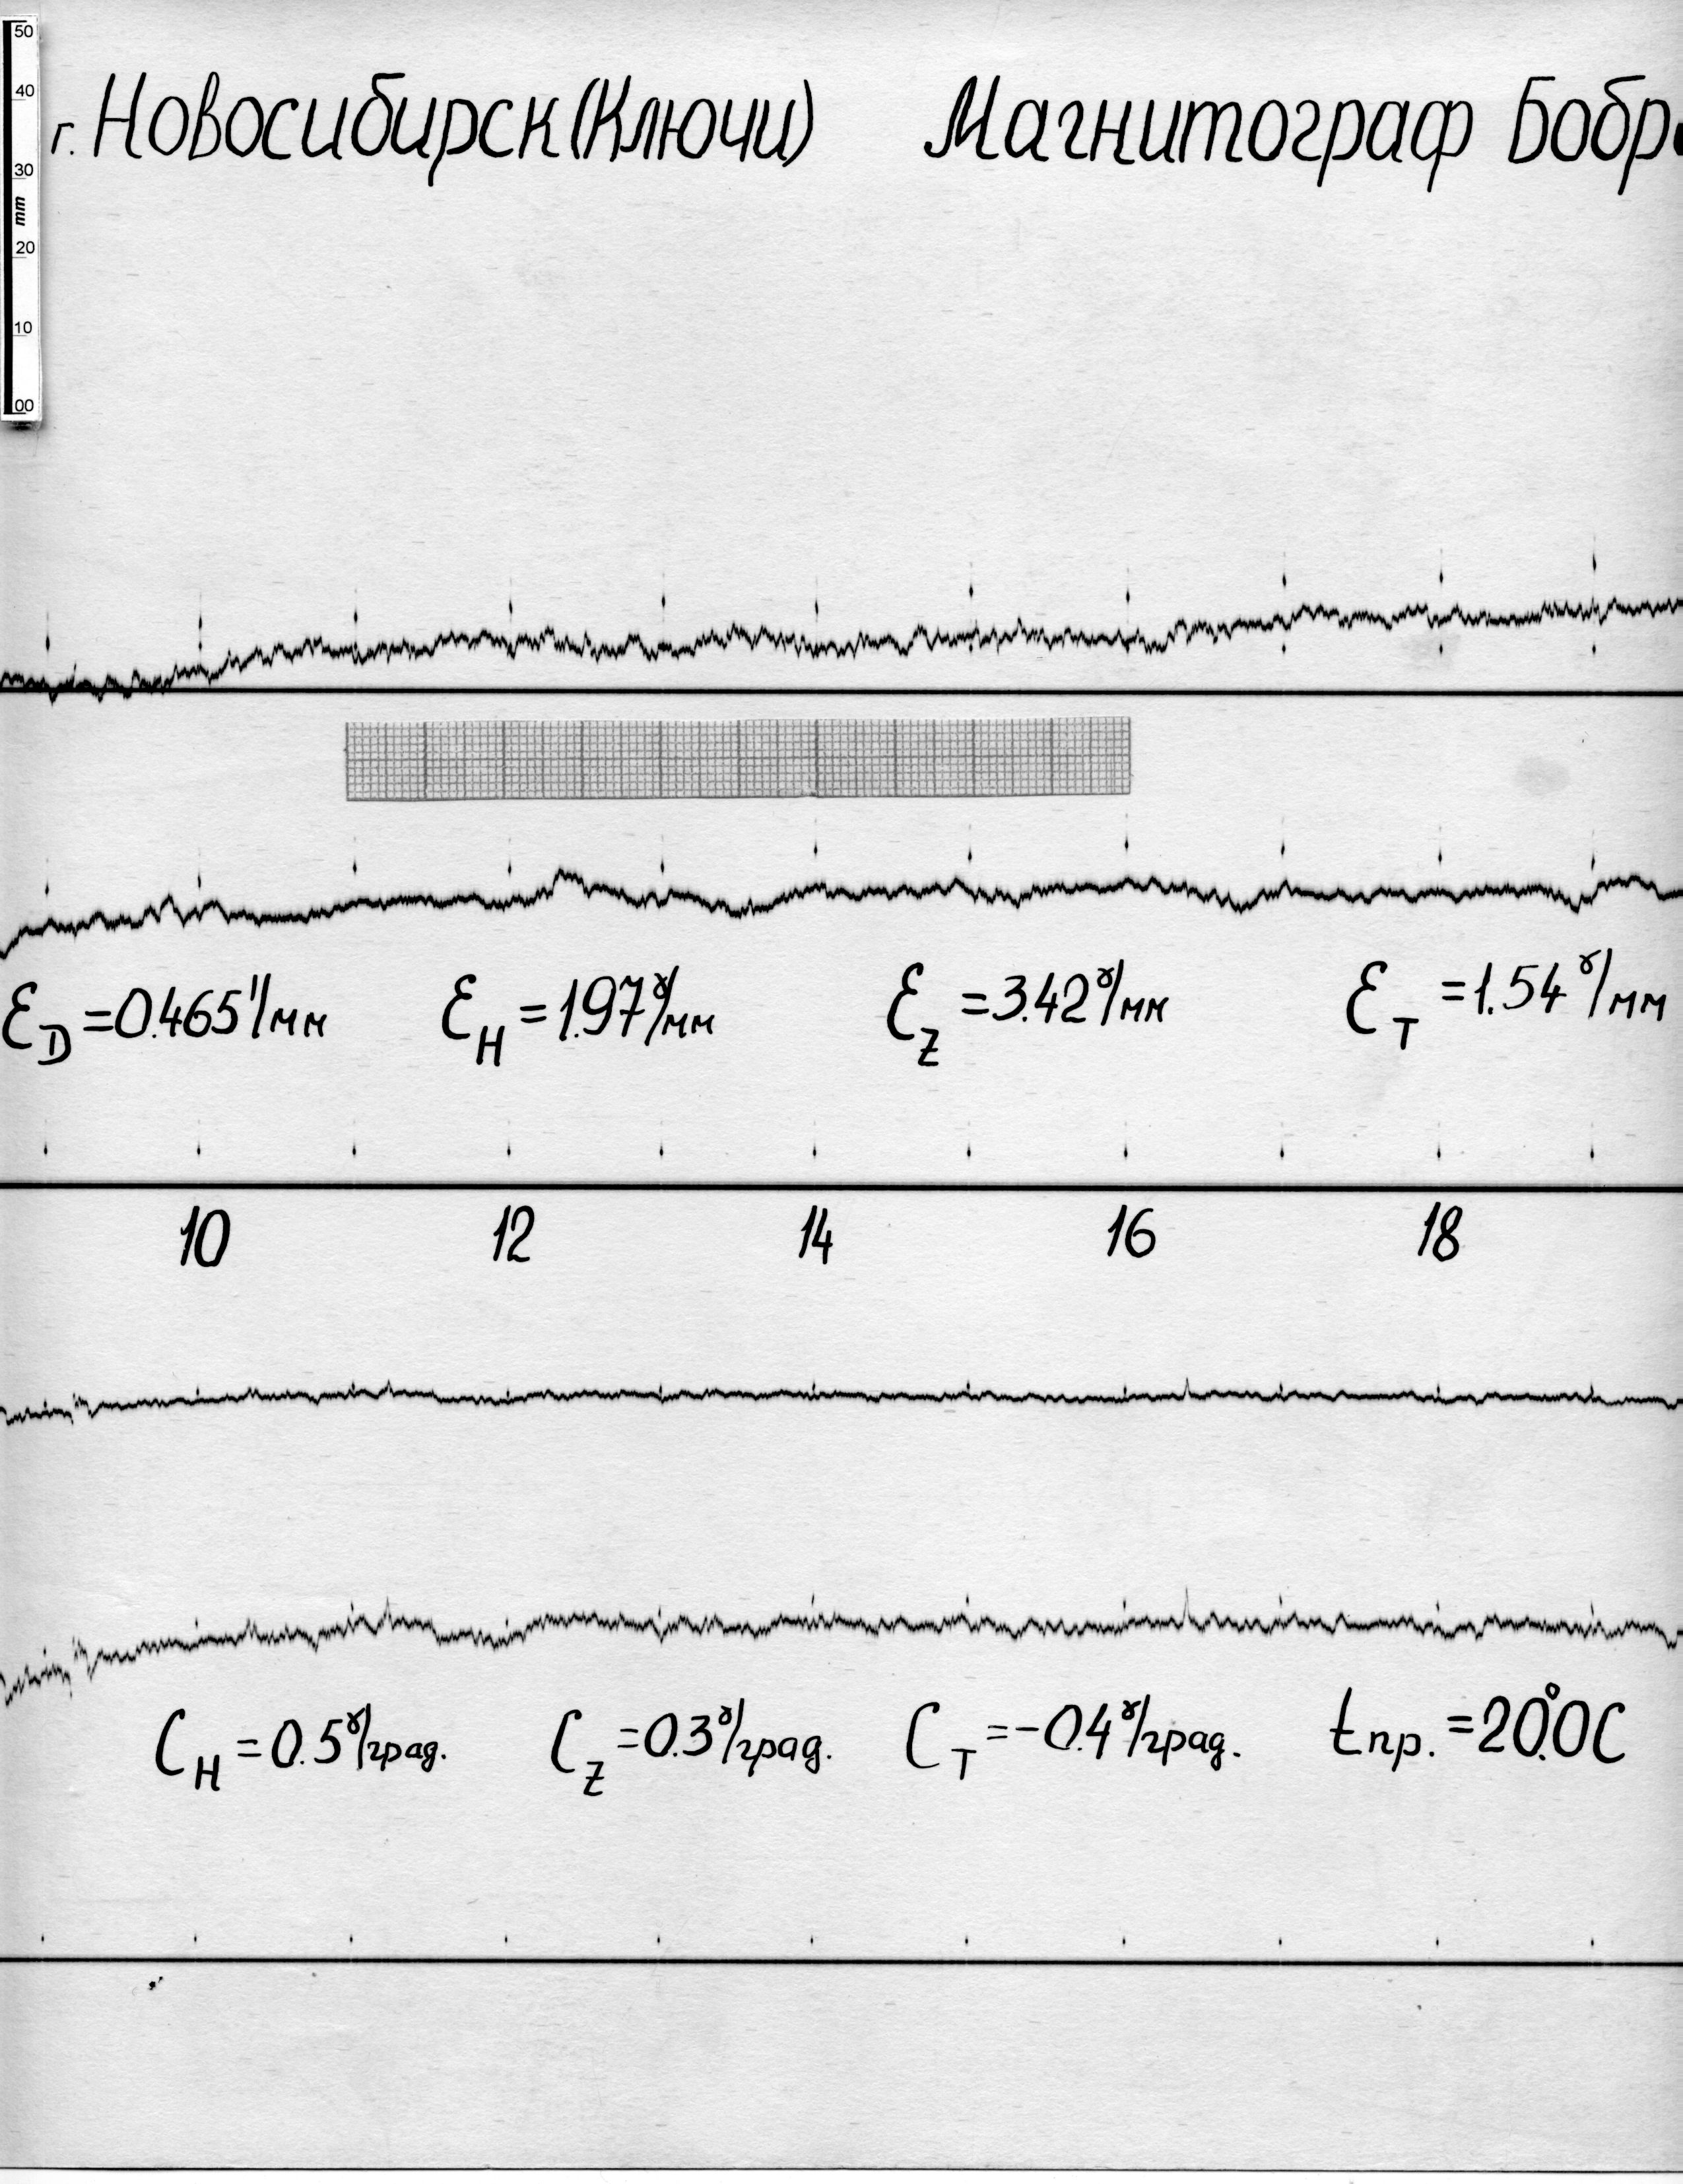 50
40
30
mm
20
10
00
г. Новосибирск (Ключи) Магнитограф Бобр
ƐD = 0.465'/мм ƐH = 1.97ɤ/мм ƐZ = 3.42ɤ/мм ƐT = 1.54ɤ/мм
10 12 14 16 18
CH = 0.5ɤ/град. CZ = 0.3ɤ/град. CT = -0.4ɤ/град. tпр. = 20.°0C